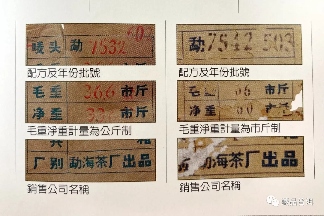 唛头 勐 1532
配方及年份批號
毛重 36.6 市斤
净重 33 市斤
毛重淨重計量為公斤制
厂别 勐海茶厂出品
銷售公司名稱
勐 7542 503
配方及年份批號
毛重 66 市斤
净重 60 市斤
毛重淨重計量為市斤制
勐海茶厂出品
銷售公司名稱